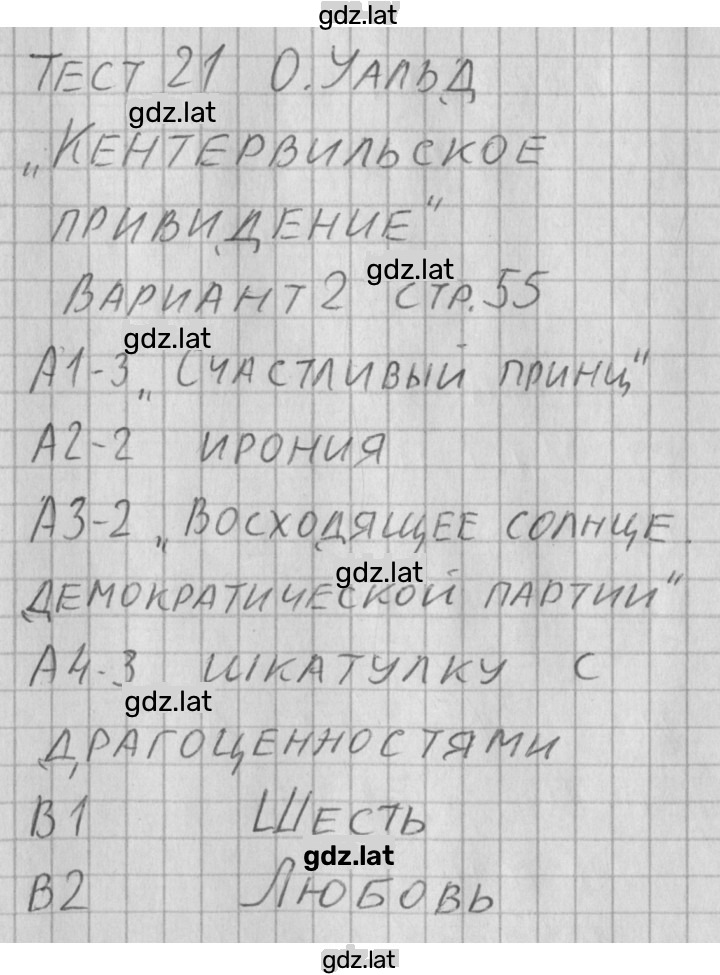 gdz.lat
ТЕСТ 21 О. УАЛЬД
gdz.lat
„КЕНТЕРВИЛЬСКОЕ
ПРИВИДЕНИЕ"
gdz.lat
ВАРИАНТ 2 СТР. 55
gdz.lat
А1-3 „СЧАСТЛИВЫЙ ПРИНЦ"
А2-2 ИРОНИЯ
А3-2 „ВОСХОДЯЩЕЕ СОЛНЦЕ.
gdz.lat
ДЕМОКРАТИЧЕСКОЙ ПАРТИИ"
А4-3 ШКАТУЛКУ С
gdz.lat
ДРАГОЦЕННОСТЯМИ
В1 ШЕСТЬ
gdz.lat
В2 ЛЮБОВЬ
gdz.lat